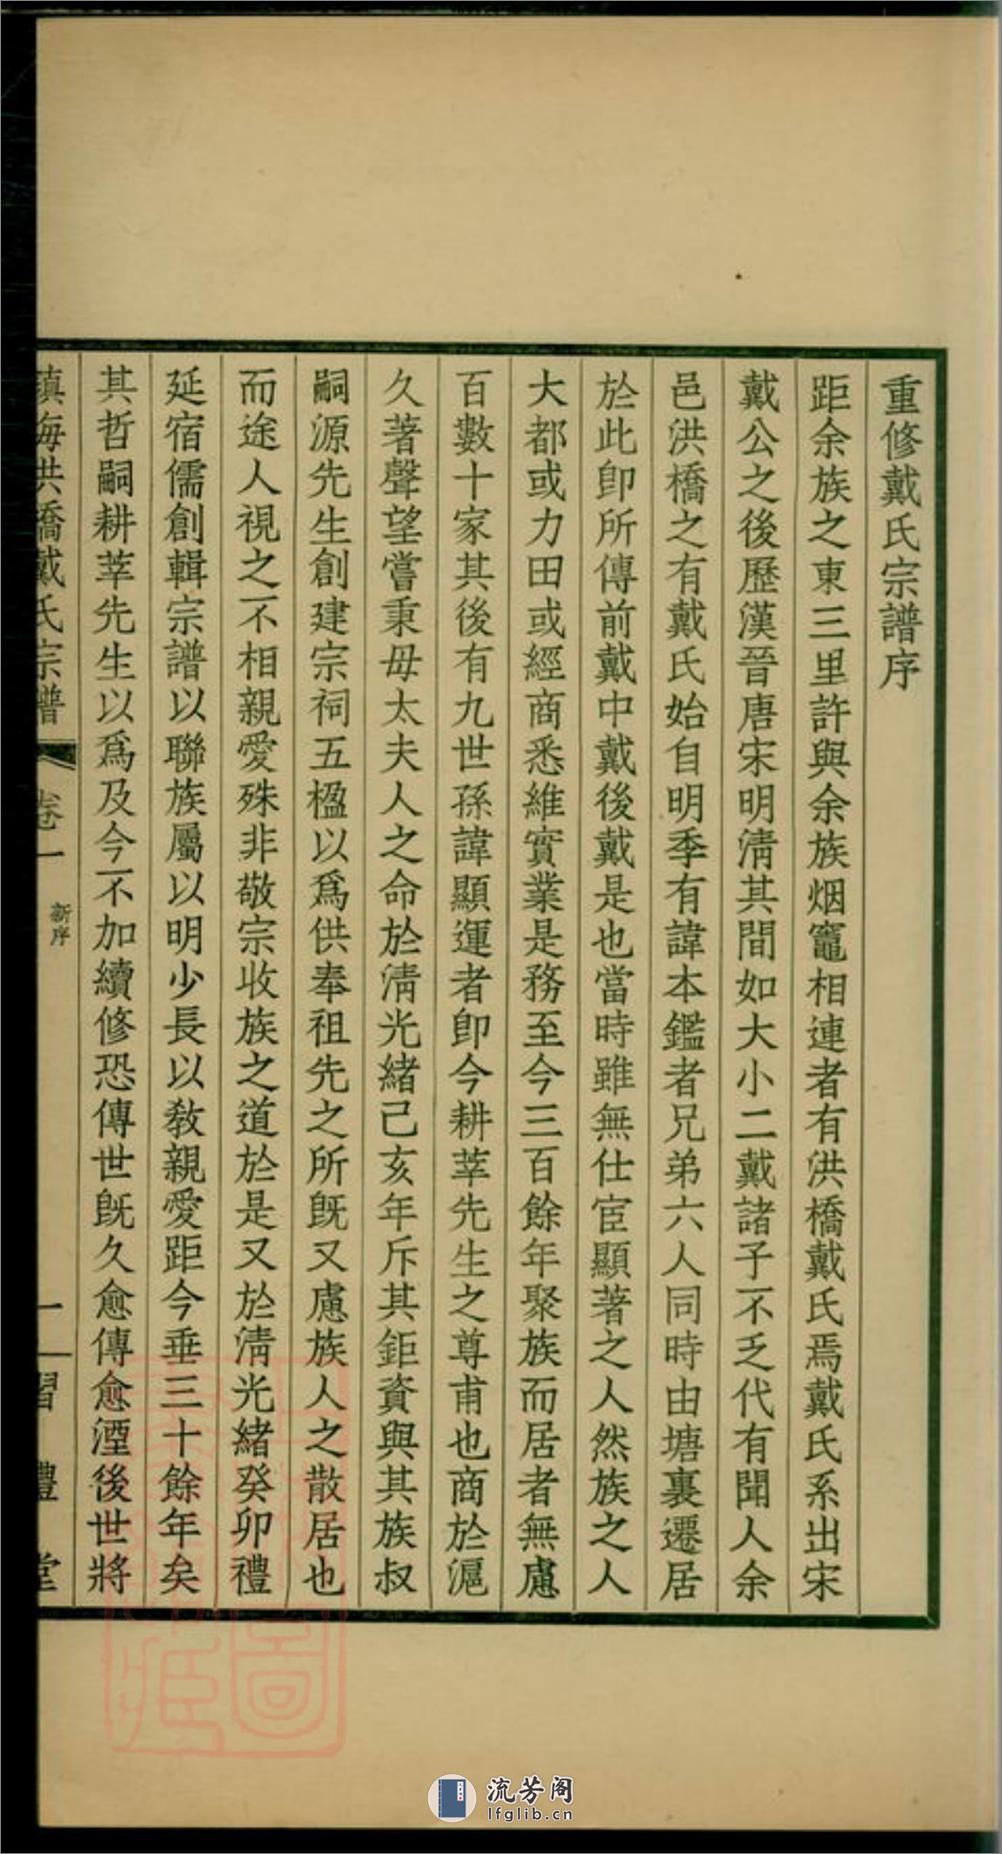 重修戴氏宗譜序
距余族之東三里許與余族烟竈相連者有洪橋戴氏焉戴氏系出宋
戴公之後歷漢晉唐宋明淸其間如大小二戴諸子不乏代有聞人余
邑洪橋之有戴氏始自明季有諱本鑑者兄弟六人同時由塘裏遷居
於此卽所傳前戴中戴後戴是也當時雖無仕宦顯著之人然族之人
大都或力田或經商悉維實業是務至今三百餘年聚族而居者無慮
百數十家其後有九世孫諱顯運者卽今耕莘先生之尊甫也商於滬
久著聲望嘗秉毋太夫人之命於淸光緒己亥年斥其鉅資與其族叔
嗣源先生創建宗祠五楹以爲供奉祖先之所旣又慮族人之散居也
而途人視之不相親愛殊非敬宗收族之道於是又於淸光緒癸卯禮
延宿儒創輯宗譜以聯族屬以明少長以敎親愛距今垂三十餘年矣
其哲嗣耕莘先生以爲及今不加續修恐傳世旣久愈傳愈湮後世將
鎮海洪橋戴氏宗譜 卷一 新序 一 習禮堂
流芳阁
lfglib.cn